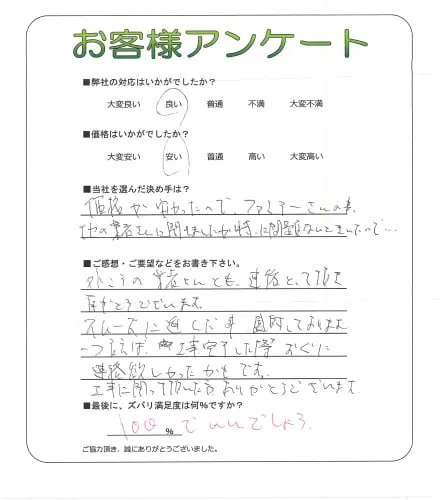 お客様アンケート
■弊社の対応はいかがでしたか？
大変良い 良い 普通 不満 大変不満
■価格はいかがでしたか？
大変安い 安い 普通 高い 大変高い
■当社を選んだ決め手は？
価格が安かったので、ファミテーさんの事、
他の業者さんに聞きましたが特に問題ないときいたので…
■ご感想・ご要望などをお書き下さい。
外こうの業者さんとも、連絡とって頂き
有がとうございます。
スムーズに進んだ事 感謝しております
一つ言えば、工事完了した際 すぐに
連絡欲しかったかもです。
工事に関って頂いた方 ありがとうございます。
■最後に、ズバリ満足度は何％ですか？
100 ％ でいいでしょう。
ご協力頂き、誠にありがとうございました。